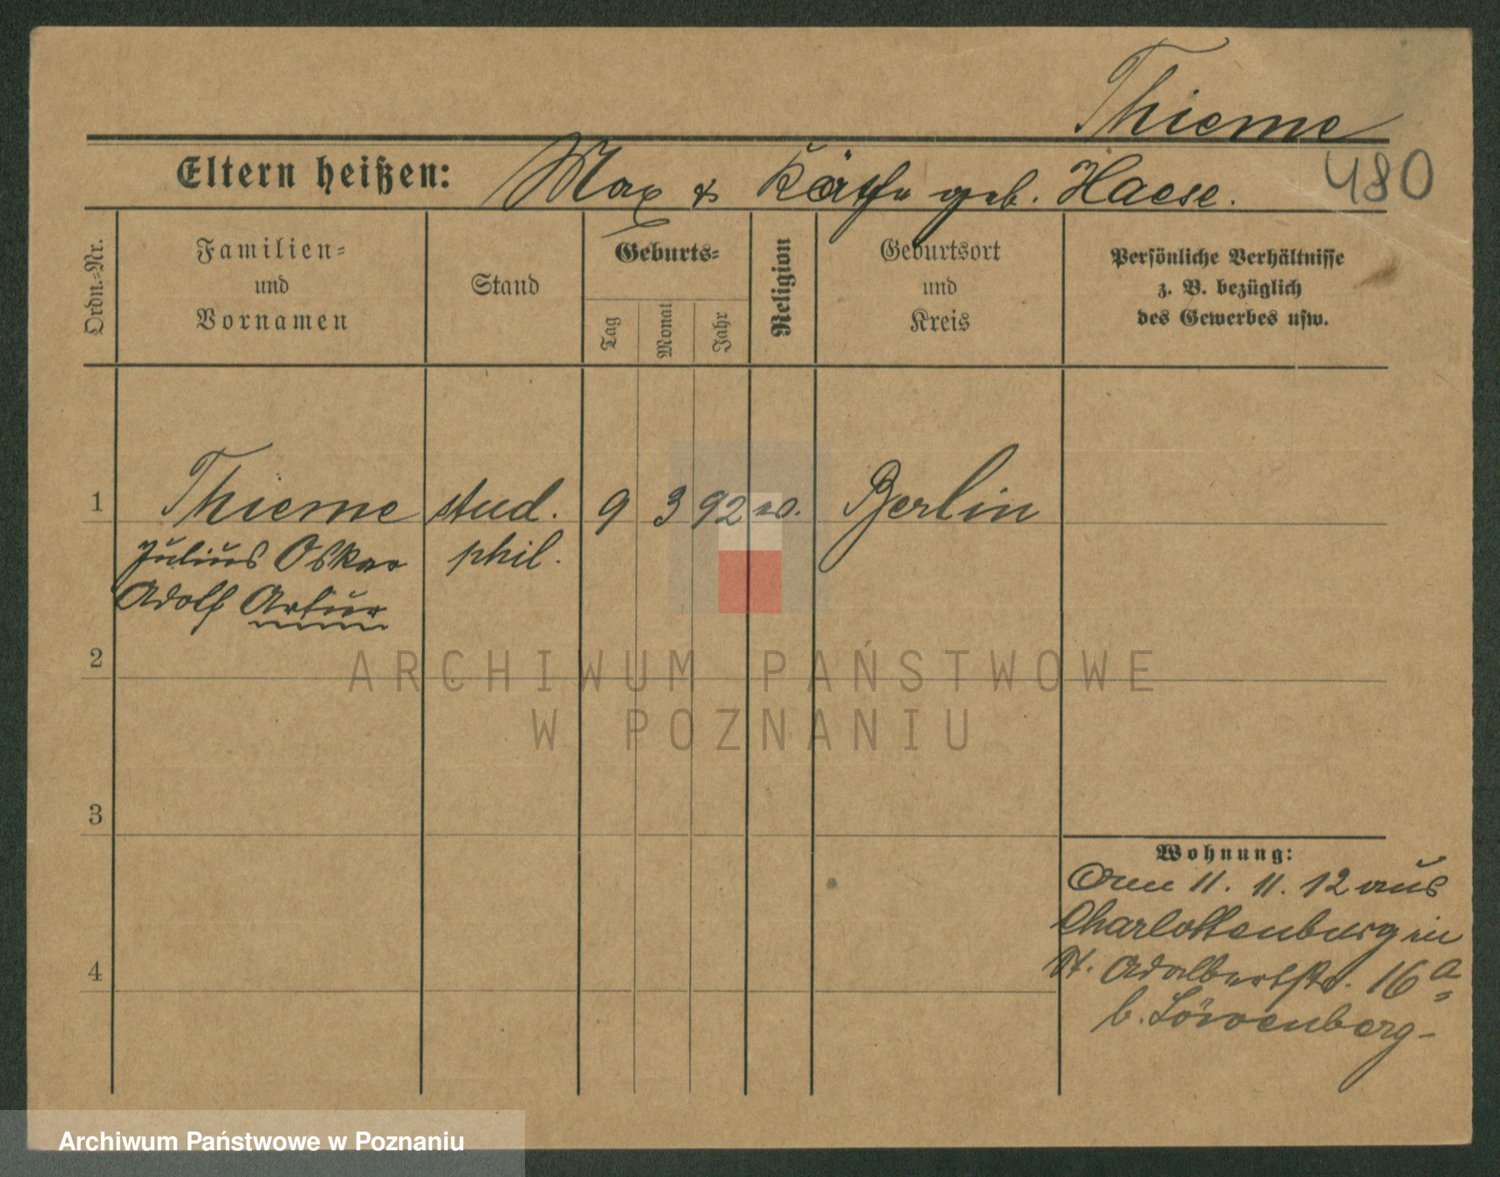 Thieme
480
Eltern heißen: Max & Käthe geb. Haese.
Ordn.-Nr.
Familien-
und
Vornamen
Stand
Geburts-
Tag
Monat
Jahr
Religion
Geburtsort
und
Kreis
Persönliche Verhältnisse
z. B. bezüglich
des Gewerbes usw.
1 Thieme stud. 9 3 92 ev. Berlin
Julius Oskar phil.
Adolf Artur
2
3
4
Wohnung:
Am 11. 11. 12 aus
Charlottenburg in
St. Adalbertstr. 16a
b. Löwenberg
ARCHIWUM PAŃSTWOWE
W POZNANIU
Archiwum Państwowe w Poznaniu